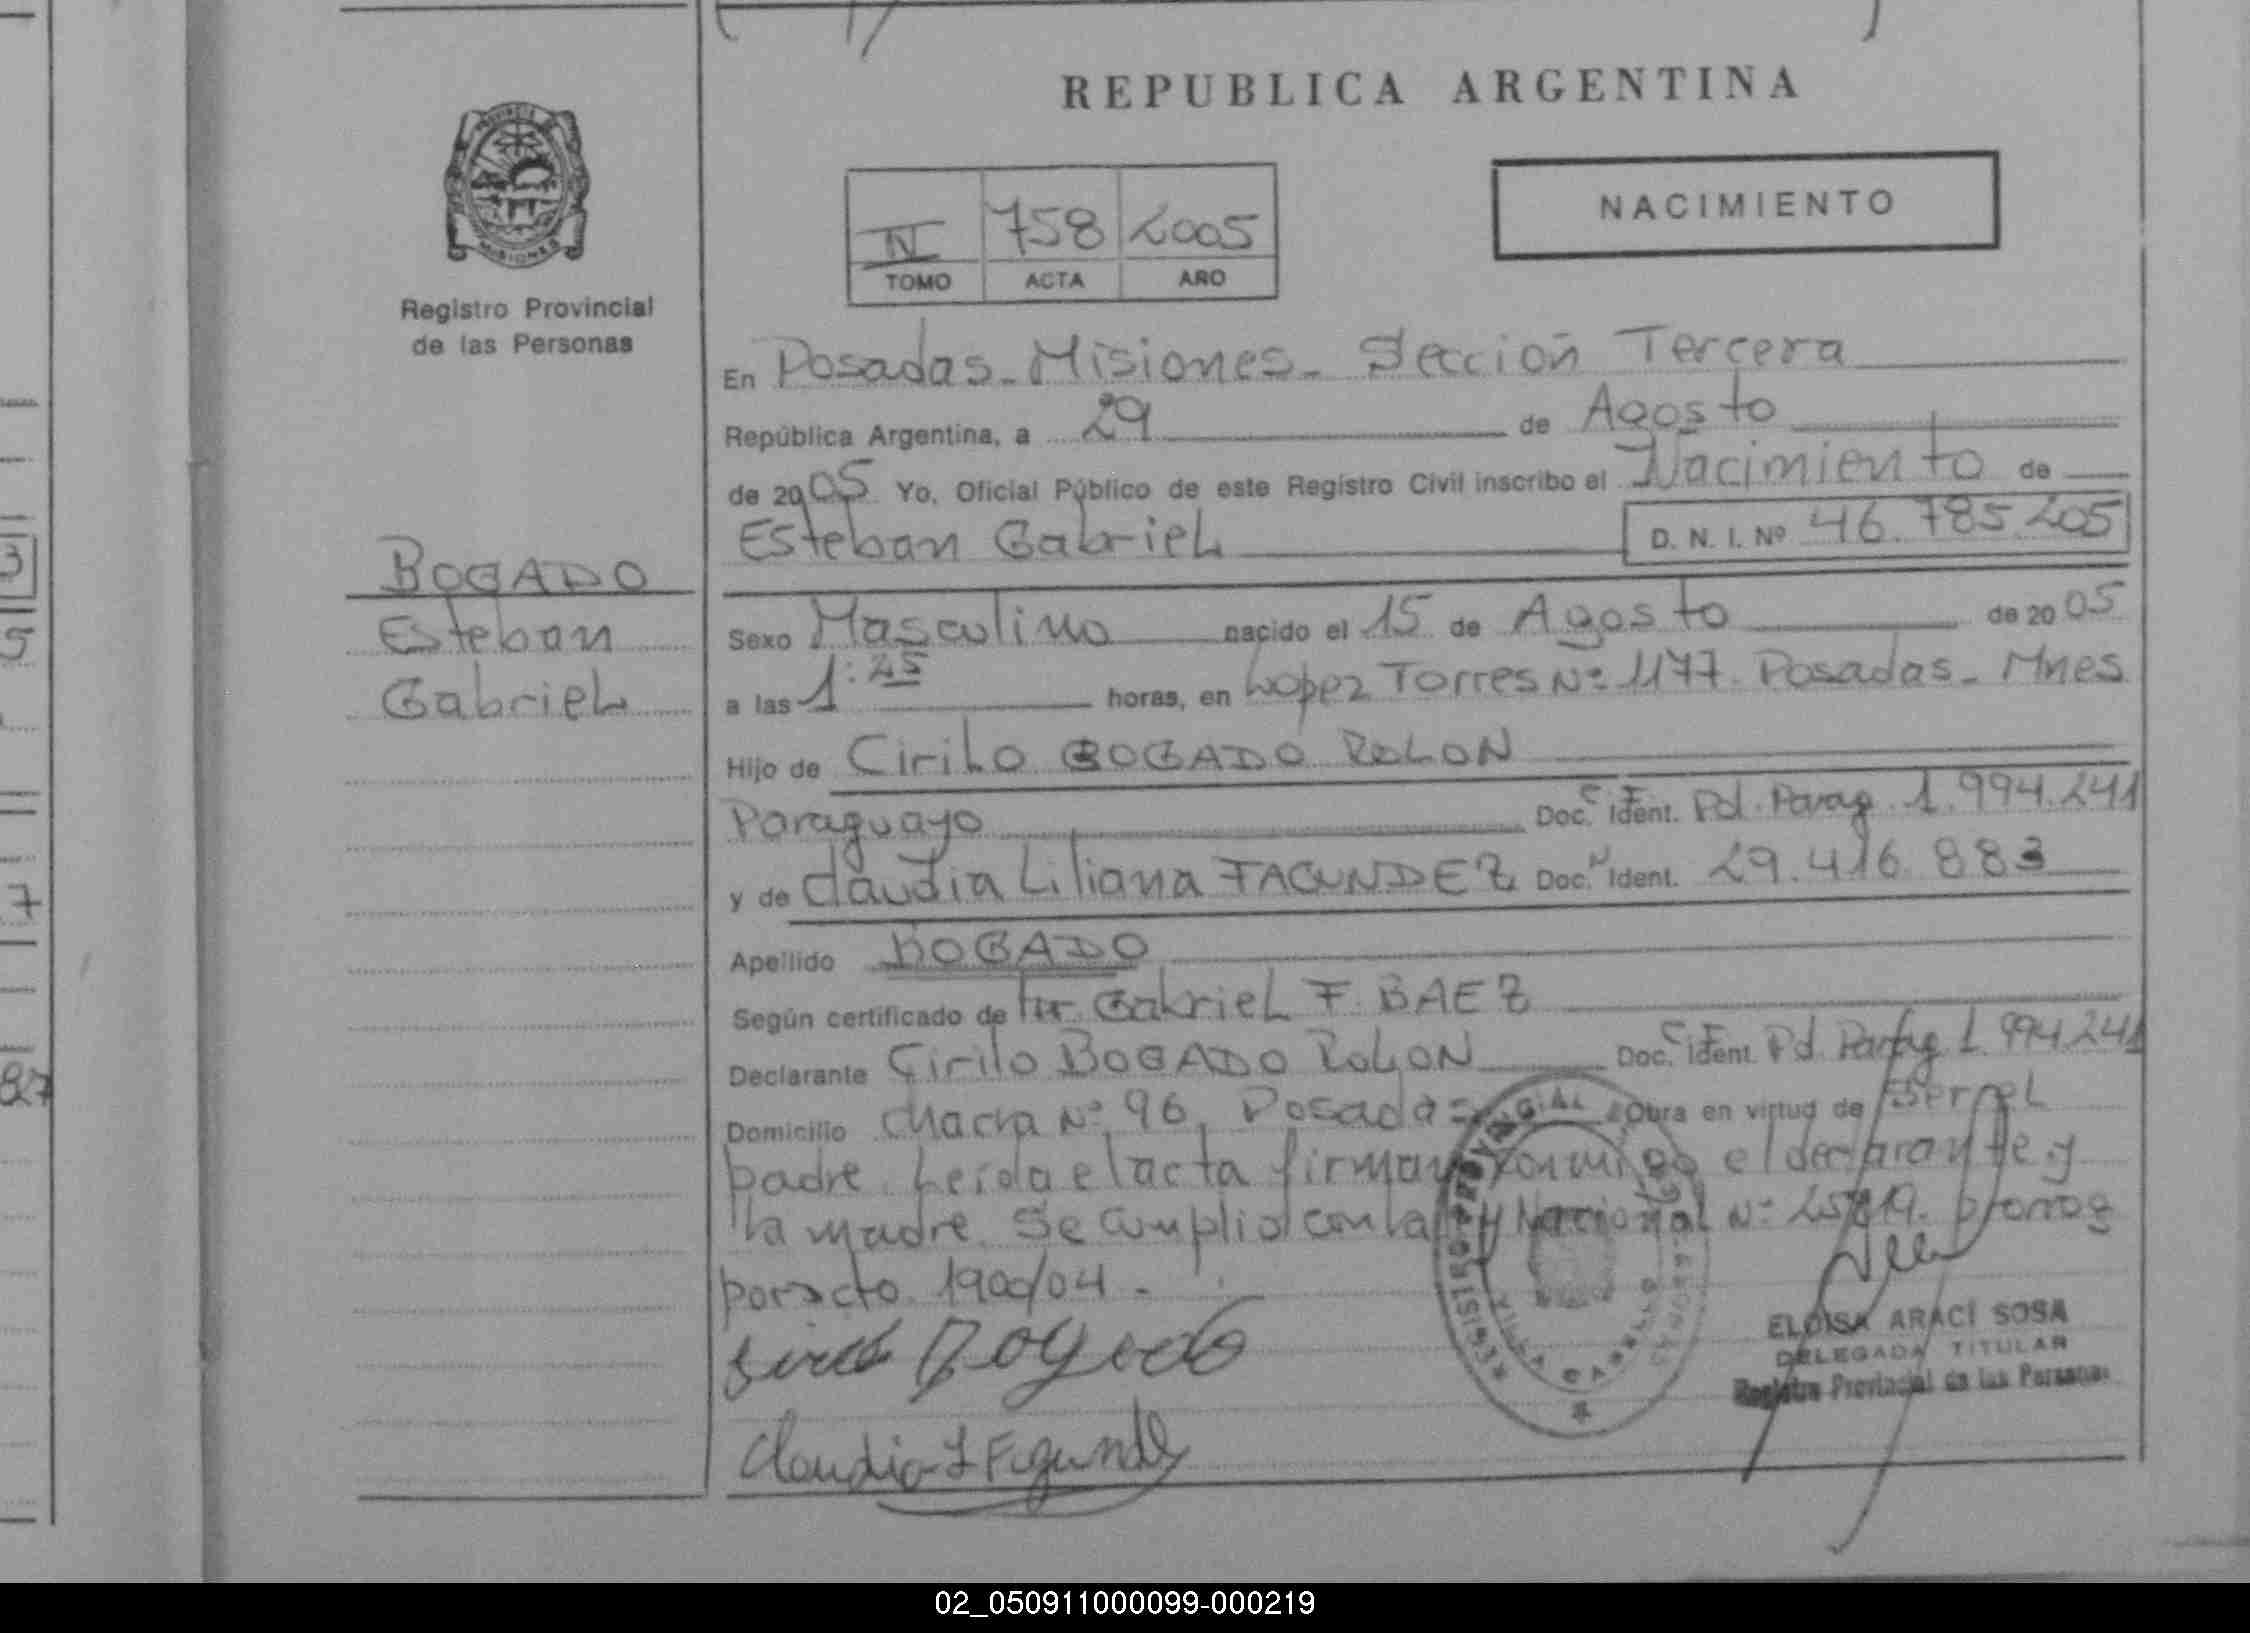 REPUBLICA ARGENTINA
PROVINCIA DE
MISIONES
Registro Provincial
de las Personas
NACIMIENTO
IV 758 2005
TOMO ACTA AÑO
En Posadas - Misiones - Sección Tercera
República Argentina, a 29 de Agosto
de 2005 Yo, Oficial Público de este Registro Civil inscribo el Nacimiento de
Esteban Gabriel D. N. I. Nº 46.785.205
BOGADO
Esteban
Gabriel
Sexo Masculino nacido el 15 de Agosto de 2005
a las 1:45 horas, en Lopez Torres Nº 1177. Posadas - Mnes
Hijo de Cirilo BOGADO ROLON
Paraguayo Doc. C.I. Ident. Pol. Parag. 1.994.241
y de Claudia Liliana FACUNDEZ Doc. N Ident. 29.416.883
Apellido BOGADO
Según certificado de Gabriel F. BAEZ
Declarante Cirilo BOGADO ROLON Doc. C.I. Ident. Pol. Parag 1.994.241
Domicilio chacra Nº 96, Posadas Obra en virtud de Ser el
padre. Leída el acta firman conmigo el declarante y
la madre. Se cumplió con la Ley Nacional Nº 25819. prorrog
por Dcto. 1900/04.-
REGISTRO PROVINCIAL
VILLA CABELLO
Bogado
Claudia L Fgundez
ELOISA ARACI SOSA
DELEGADA TITULAR
Registro Provincial de las Personas
3
5
7
87
02_050911000099-000219